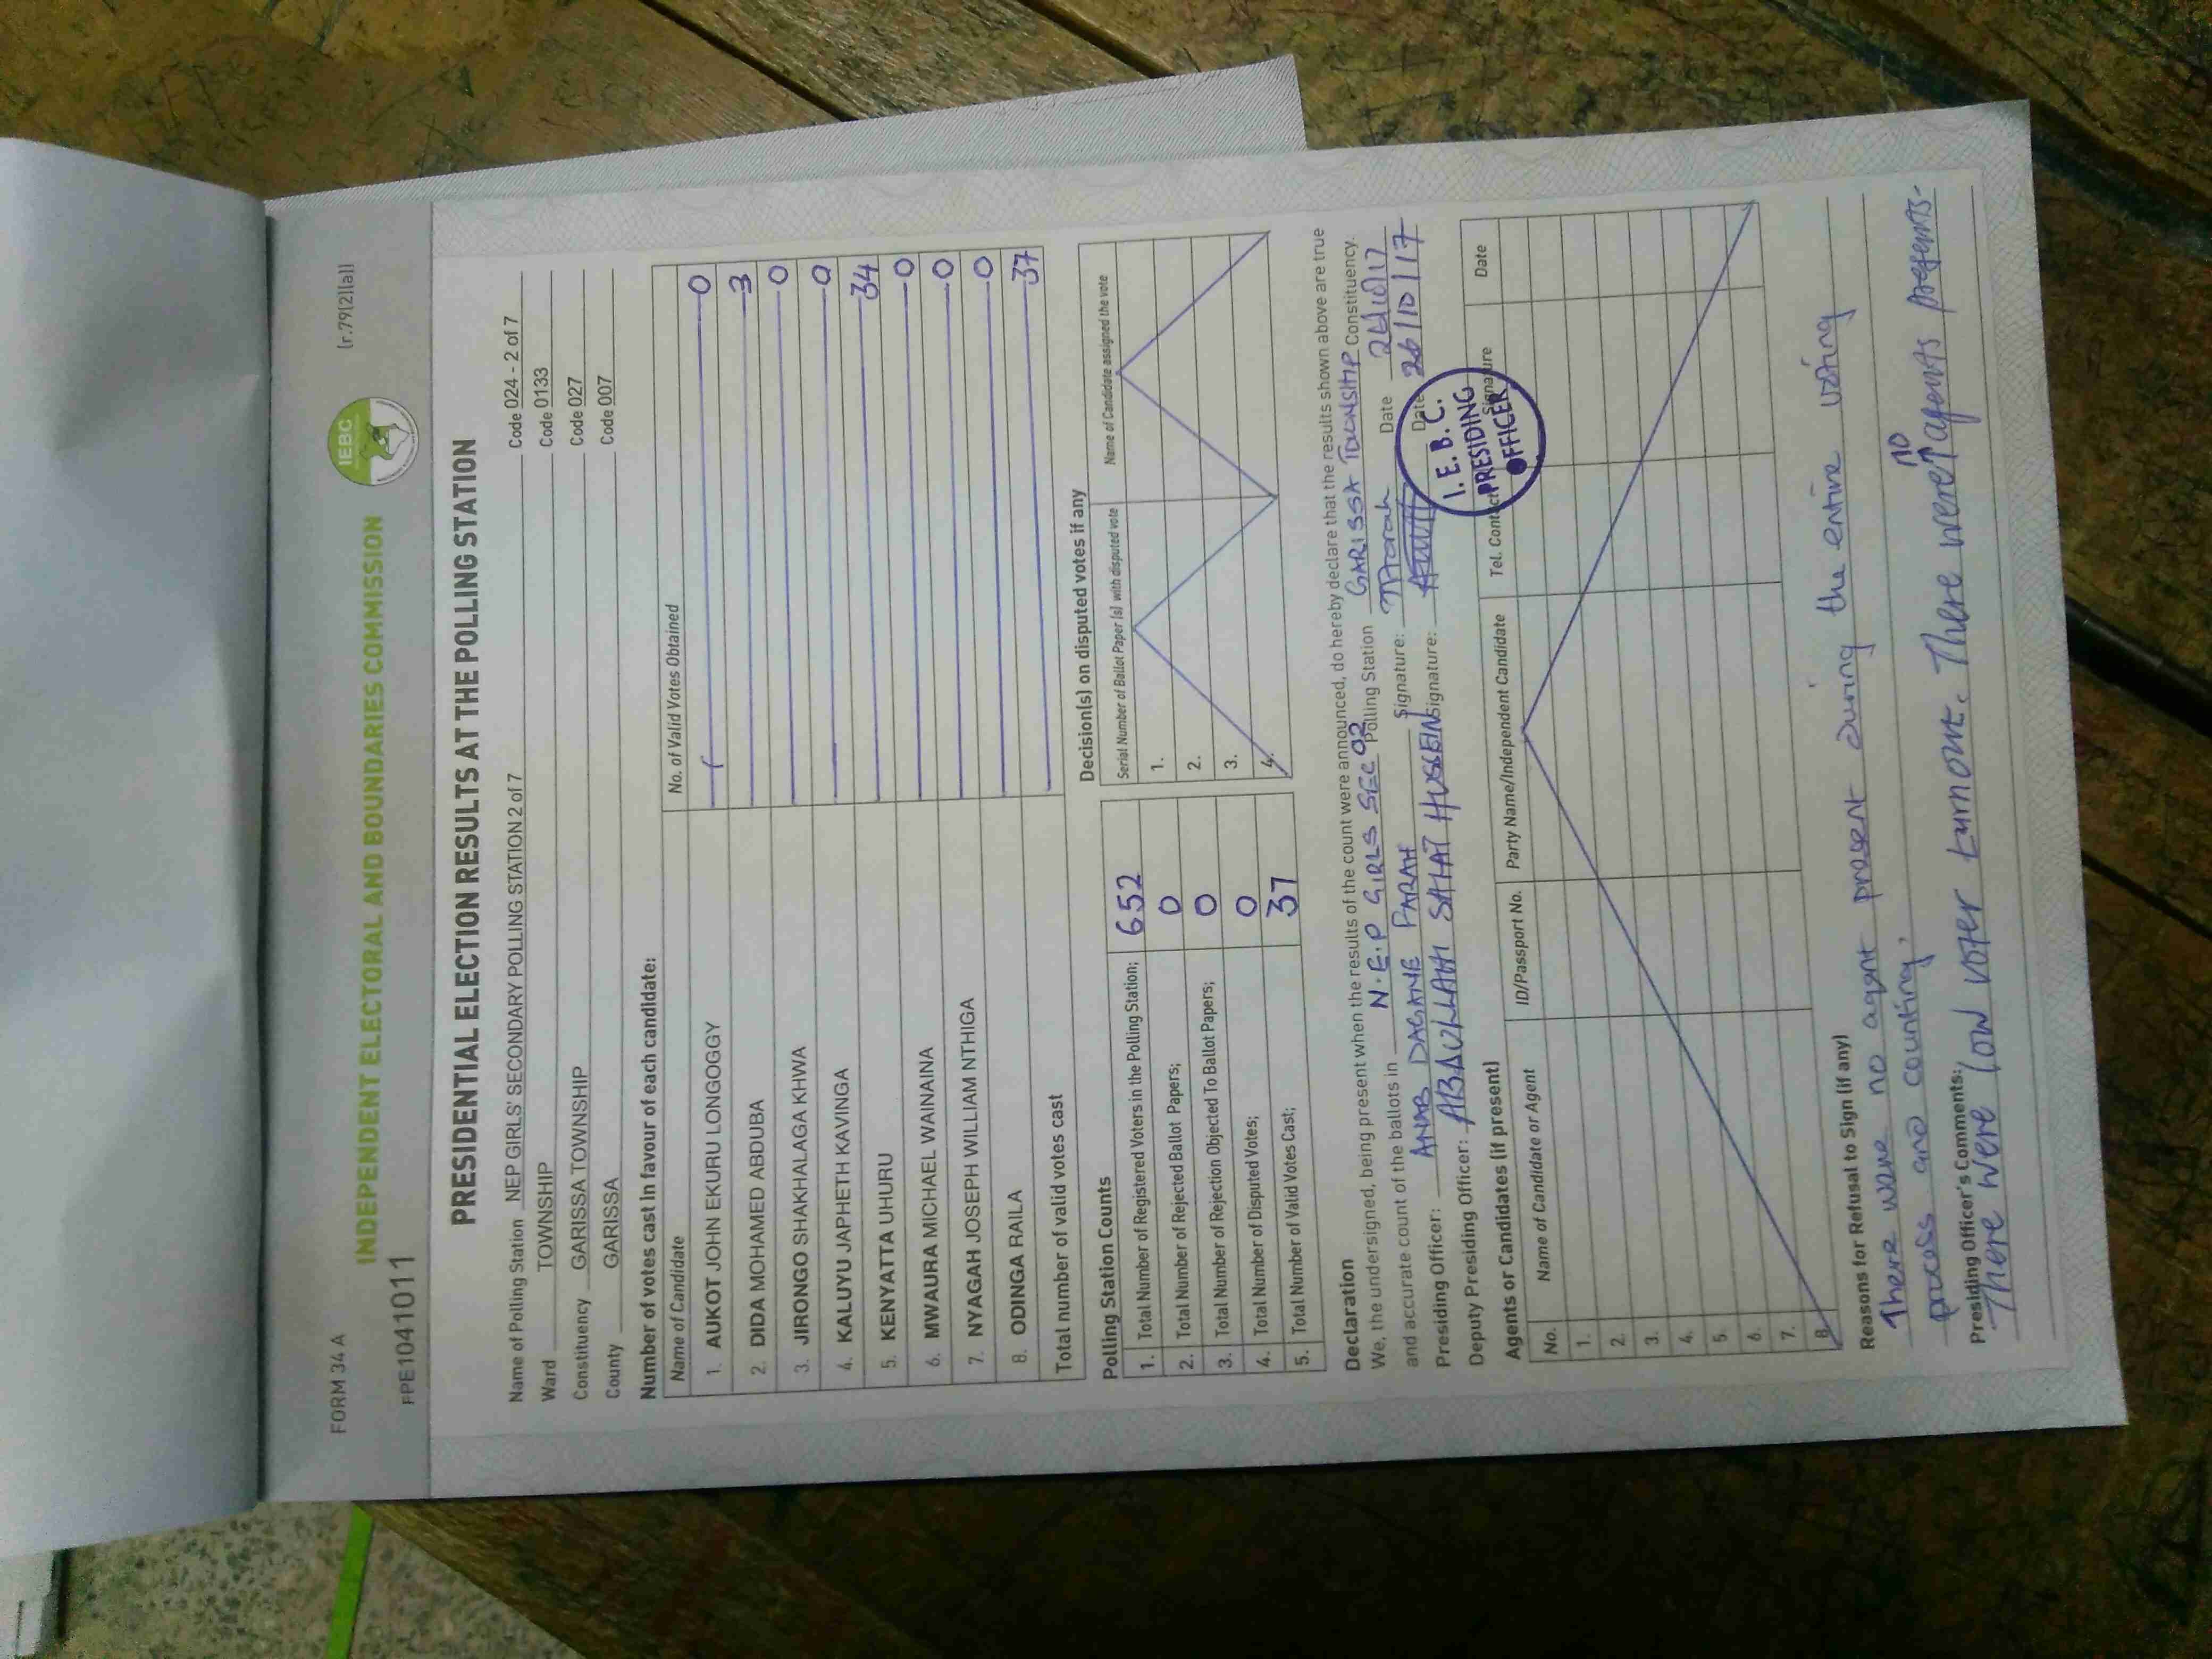 FORM 34 A
INDEPENDENT ELECTORAL AND BOUNDARIES COMMISSION
IEBC
(r.79(2)(a))
FPE1041011
PRESIDENTIAL ELECTION RESULTS AT THE POLLING STATION
Name of Polling Station NEP GIRLS' SECONDARY POLLING STATION 2 of 7 Code 024 - 2 of 7
Ward TOWNSHIP Code 0133
Constituency GARISSA TOWNSHIP Code 027
County GARISSA Code 007
Number of votes cast in favour of each candidate:
Name of Candidate No. of Valid Votes Obtained
1. AUKOT JOHN EKURU LONGOGGY 0
2. DIDA MOHAMED ABDUBA 3
3. JIRONGO SHAKHALAGA KHWA 0
4. KALUYU JAPHETH KAVINGA 0
5. KENYATTA UHURU 34
6. MWAURA MICHAEL WAINAINA 0
7. NYAGAH JOSEPH WILLIAM NTHIGA 0
8. ODINGA RAILA 0
Total number of valid votes cast 37
Polling Station Counts
1. Total Number of Registered Voters in the Polling Station; 652
2. Total Number of Rejected Ballot Papers; 0
3. Total Number of Rejection Objected To Ballot Papers; 0
4. Total Number of Disputed Votes; 0
5. Total Number of Valid Votes Cast; 37
Decision(s) on disputed votes if any
Serial Number of Ballot Paper (s) with disputed vote Name of Candidate assigned the vote
1.
2.
3.
4.
Declaration
We, the undersigned, being present when the results of the count were announced, do hereby declare that the results shown above are true
and accurate count of the ballots in N.E.P GIRLS SEC 02 Polling Station GARISSA TOWNSHIP Constituency.
Presiding Officer: ANAB DAGANE FARAH Signature: Date
Deputy Presiding Officer: ABDULLAHI SAHAT HUSSEIN Signature: Date 26/10/17
I. E. B. C.
PRESIDING
OFFICER
Agents or Candidates (if present)
No. Name of Candidate or Agent ID/Passport No. Party Name/Independent Candidate Tel. Contact Signature Date
1.
2.
3.
4.
5.
6.
7.
8.
Reasons for Refusal to Sign (if any)
There were no agent present during the entire voting
process and counting,
Presiding Officer's Comments:
There were low voter turnout. There were no agents presents.